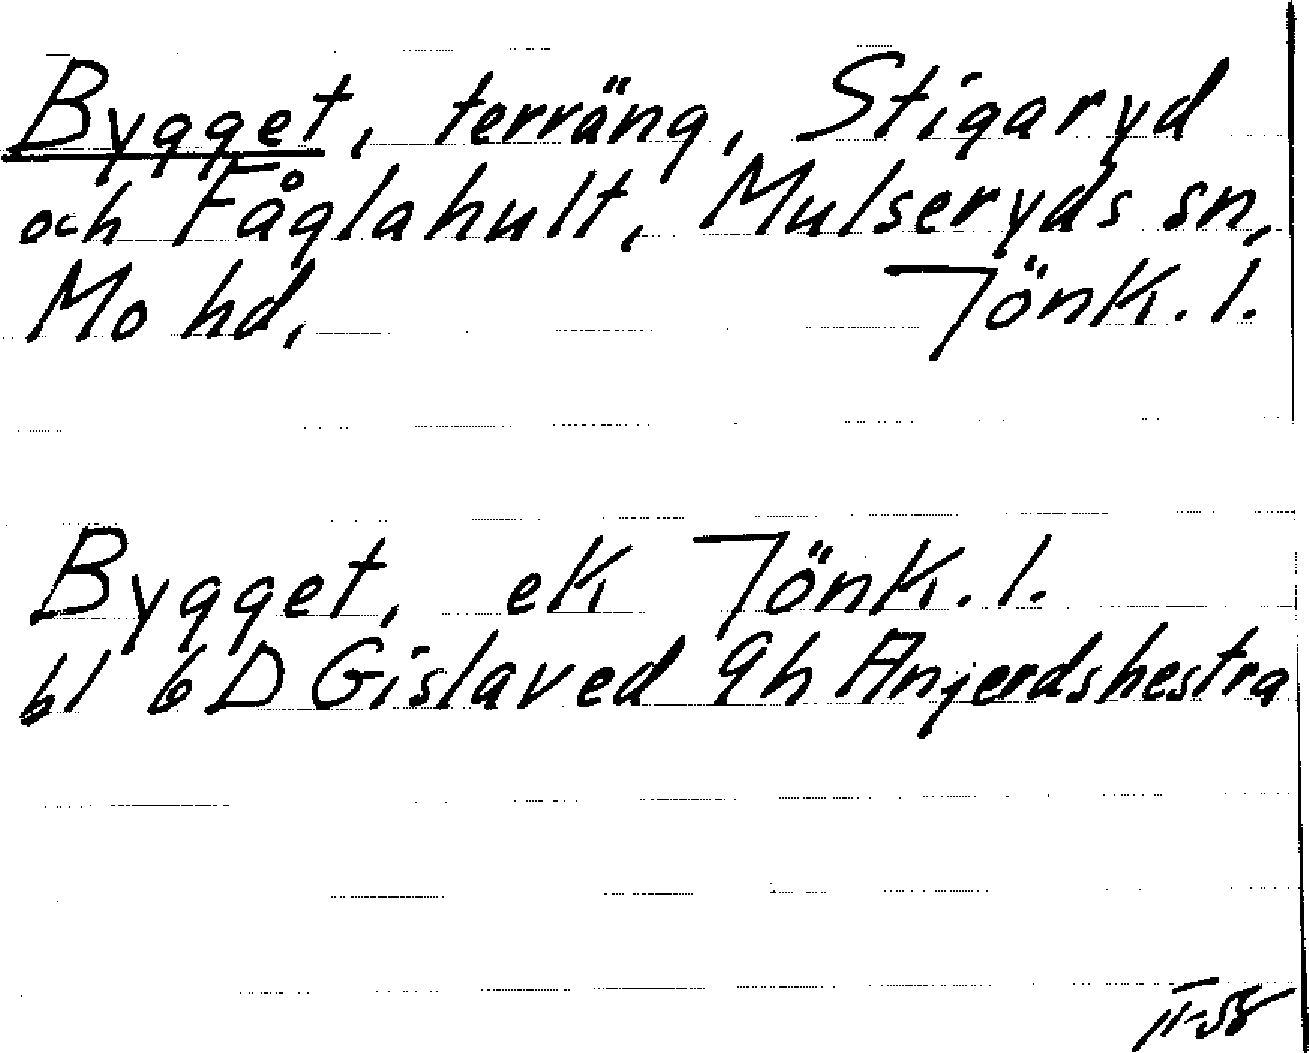 Bygget, terräng, Stigaryd
och Fåglahult, Mulseryds sn,
Mo hd, Jönk. l.
Bygget, ek Jönk. l.
bl 6D Gislaved 9h Anjerdshestra